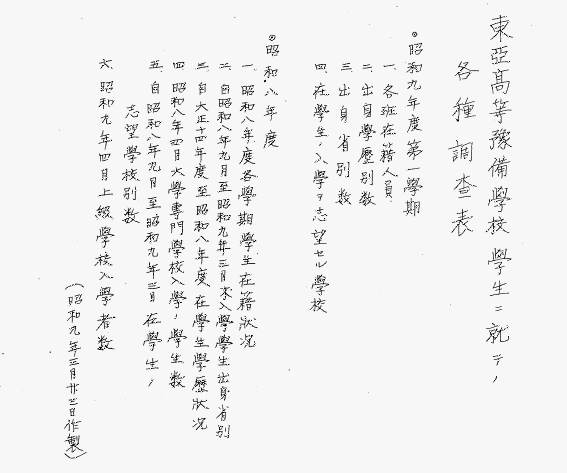 東亞高等豫備學校 學生ニ就テノ
各種調査表
◎昭和九年度第一學期
一、各班在籍人員
二、出身學歷別數
三、出身省別數
四、在學生ノ入學ヲ志望セル學校
◎昭和八年度
一、昭和八年度各學期學生在籍狀況
二、自昭和八年九月至昭和九年三月末入學學生出身省別
三、自大正十四年度至昭和八年度在學生學歷狀況
四、昭和八年四月大學專門學校入學ノ學生數
五、自昭和八年九月至昭和九年三月在學生ノ
志望學校別數
六、昭和九年四月上級學校入學者數
(昭和九年三月廿三日作製)